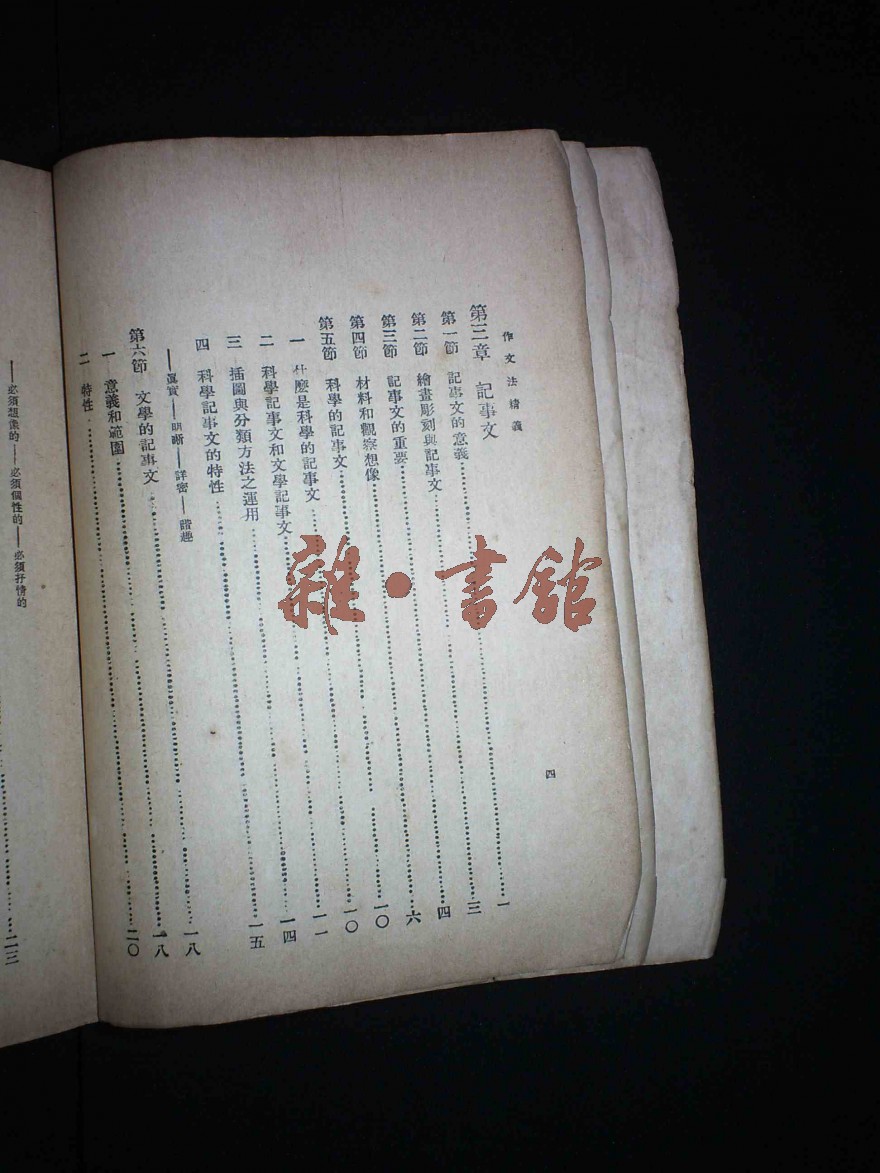 作文法精義
四
第三章 記事文
第一節 記事文的意義……一
第二節 繪畫彫刻與記事文……三
第三節 記事文的重要……四
第四節 材料和觀察想像……六
第五節 科學的記事文……一〇
一 什麼是科學的記事文……一〇
二 科學記事文和文學記事文……一一
三 插圖與分類方法之運用……一四
四 科學記事文的特性……一五
——眞實——明晰——詳密——諧趣
第六節 文學的記事文……一八
一 意義和範圍……一八
二 特性……二〇
——必須想像的——必須個性的——必須抒情的
……二三
雜·書館